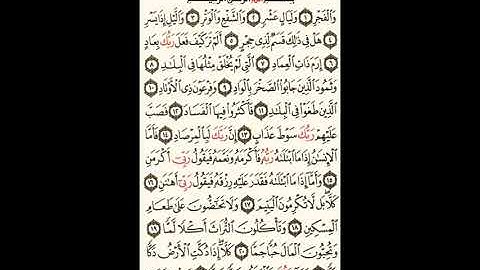 بِسْمِ اللَّهِ الرَّحْمَٰنِ الرَّحِيمِ
وَالْفَجْرِ ١ وَلَيَالٍ عَشْرٍ ٢ وَالشَّفْعِ وَالْوَتْرِ ٣ وَاللَّيْلِ إِذَا يَسْرِ
٤ هَلْ فِي ذَٰلِكَ قَسَمٌ لِّذِي حِجْرٍ ٥ أَلَمْ تَرَ كَيْفَ فَعَلَ رَبُّكَ بِعَادٍ
٦ إِرَمَ ذَاتِ الْعِمَادِ ٧ الَّتِي لَمْ يُخْلَقْ مِثْلُهَا فِي الْبِلَادِ ٨
وَثَمُودَ الَّذِينَ جَابُوا الصَّخْرَ بِالْوَادِ ٩ وَفِرْعَوْنَ ذِي الْأَوْتَادِ ١٠
الَّذِينَ طَغَوْا فِي الْبِلَادِ ١١ فَأَكْثَرُوا فِيهَا الْفَسَادَ ١٢ فَصَبَّ
عَلَيْهِمْ رَبُّكَ سَوْطَ عَذَابٍ ١٣ إِنَّ رَبَّكَ لَبِالْمِرْصَادِ ١٤ فَأَمَّا
الْإِنسَانُ إِذَا مَا ابْتَلَاهُ رَبُّهُ فَأَكْرَمَهُ وَنَعَّمَهُ فَيَقُولُ رَبِّي أَكْرَمَنِ
١٥ وَأَمَّا إِذَا مَا ابْتَلَاهُ فَقَدَرَ عَلَيْهِ رِزْقَهُ فَيَقُولُ رَبِّي أَهَانَنِ ١٦
كَلَّا بَل لَّا تُكْرِمُونَ الْيَتِيمَ ١٧ وَلَا تَحَاضُّونَ عَلَىٰ طَعَامِ
الْمِسْكِينِ ١٨ وَتَأْكُلُونَ التُّرَاثَ أَكْلًا لَّمًّا ١٩
وَتُحِبُّونَ الْمَالَ حُبًّا جَمًّا ٢٠ كَلَّا إِذَا دُكَّتِ الْأَرْضُ دَكًّا